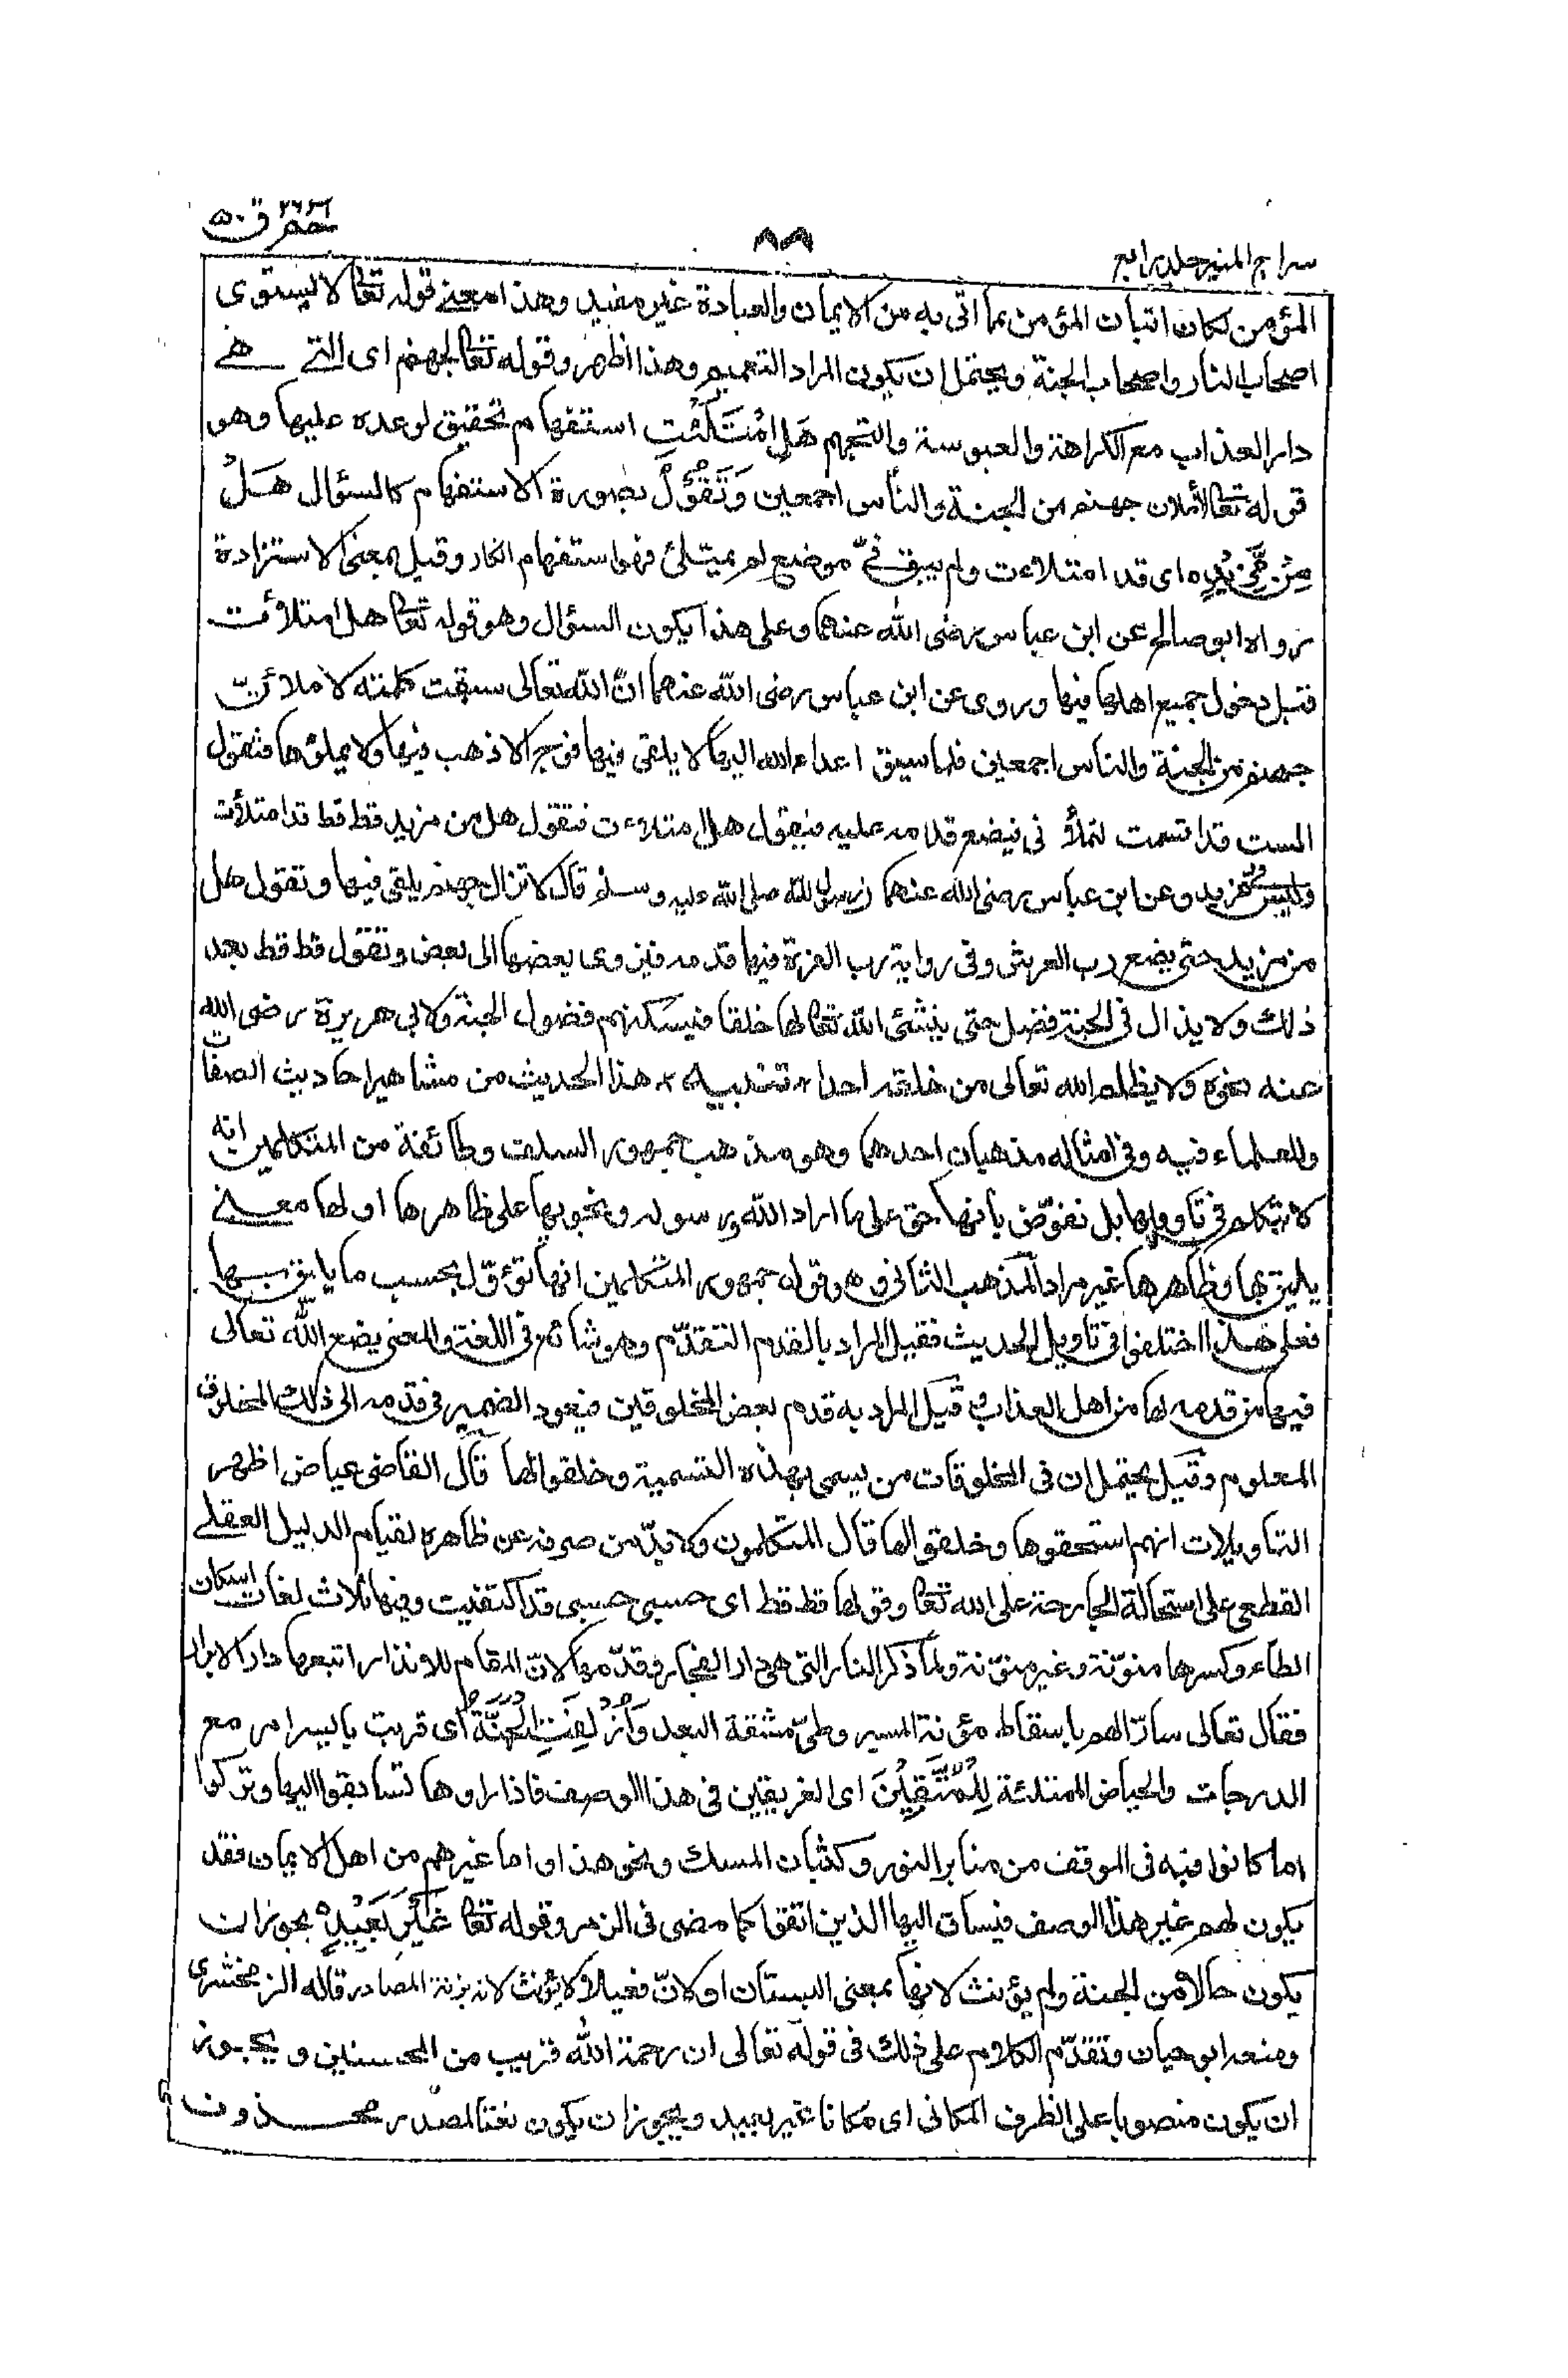 سراج المنير جلد رابع
٨٦
حم ٢٦ ق ٥٠
المؤمن لكان اتيان المؤمن بما اتى به من الايمان والعبادة غير مفيد وهذا معنى قوله تعالى لا يستوى
اصحاب النار واصحاب الجنة ويحتمل ان يكون المراد التعميم وهذا اظهر وقوله تعالى لجهنم اى التى هى
دار العذاب مع الكراهة والعبوسة والتجهم هَلِ امْتَلَئْتِ استفهام تحقيق لوعده عليها وهو
قوله تعالى لأملان جهنم من الجنة والناس اجمعين وَتَقُوْلُ بصورة الاستفهام كالسؤال هَلْ
مِنْ مَّزِيْدٍ ه اى قد امتلاءت ولم يبق فىّ موضع لم يمتلئ فهو استفهام انكار وقيل بمعنى الاستزادة
رواه ابو صالح عن ابن عباس رضى الله عنهما وعلى هذا يكون السؤال وهو قوله تعالى هل امتلاءت
قبل دخول جميع اهلها فيها وروى عن ابن عباس رضى الله عنهما انّ الله تعالى سبقت كلمته لاملأنّ
جهنم من الجنة والناس اجمعين فلما سيق اعداء الله اليها لا يلقى فيها فوج الا ذهب فيها ولا يملؤها فتقول
الست قد اقسمت لتملأ نى فيضع قدمه عليه فيقول هل امتلاءت فتقول هل من مزيد قط قط قد امتلأت
وليس مزيد وعن ابن عباس رضى الله عنهما ان رسول الله صلى الله عليه وسلم قال لا تزال جهنم يلقى فيها وتقول هل
من مزيد حتى يضع رب العرش وفى رواية رب العزة فيها قدمه فينزوى بعضها الى بعض وتقول قط قط بعد
ذلك ولا يزال فى الجنة فضل حتى ينشئ الله تعالى لها خلقا فيسكنهم فضول الجنة ولابى هريرة رضى الله
عنه نحوه ولا يظلم الله تعالى من خلقه احدا * تنبيه * هذا الحديث من مشاهير احاديث الصفات
وللعلماء فيه وفى امثاله مذهبان احدهما وهو مذهب جمهور السلف وطائفة من المتكلمين انه
لا يتكلم فى تأويلها بل نفوّض بأنها حق على ما اراد الله ورسوله ونجريها على ظاهرها او لها معنى
يليق بها وظاهرها غير مراد المذهب الثانى وهو قول جمهور المتكلمين انها تؤوّل بحسب ما يليق بها
فعلى هذا اختلفوا فى تاويل الحديث فقيل المراد بالقدم التقدّم وهو شائع فى اللغة والمعنى يضع الله تعالى
فيها من قدمه لها من اهل العذاب وقيل المراد به قدم بعض المخلوقين فيعود الضمير فى قدمه الى ذلك المخلوق
المعلوم وقيل يحتمل ان فى المخلوقات من يسمى بهذه التسمية وخلقوا لها قال القاضى عياض اظهر
التاويلات انهم استحقوها وخلقوا لها قال المتكلمون ولا بدّ من صرفه عن ظاهره لقيام الدليل العقلى
القطعى على استحالة الجارحة على الله تعالى وقولها قط قط اى حسبى حسبى قد اكتفيت وفيها ثلاث لغات اسكان
الطاء وكسرها منوّنة وغير منوّنة ولما ذكر النار التى هى دار الفجار وقدّمها لانّ المقام للانذار اتبعها دار الابرار
فقال تعالى سارّا لهم باسقاط مؤنة المسير وطىّ مشقة البعد وَاُزْلِفَتِ الْجَنَّةُ اى قربت بايسر امر مع
الدرجات والحياض الممتلئة لِلْمُتَّقِيْنَ اى العريقين فى هذا الوصف فاذا راوها تسابقوا اليها وتركوا
ما كانوا فيه فى الموقف من منابر النور وكثبان المسك ونحو هذا واما غيرهم من اهل الايمان فقد
يكون لهم غير هذا الوصف فيساق اليها الذين اتقوا كما مضى فى الزمر وقوله تعالى غَيْرَ بَعِيْدٍ ه يجوز ان
يكون حالا من الجنة ولم يؤنث لانها بمعنى البستان او لانّ فعيلا لا يؤنث لانه بزنة المصادر قاله الزمخشرى
ومنعه ابو حيان وتقدّم الكلام على ذلك فى قوله تعالى ان رحمة الله قريب من المحسنين ويجوز
ان يكون منصوبا على الظرف المكانى اى مكانا غير بعيد ويجوز ان يكون نعتا لمصدر محذوف